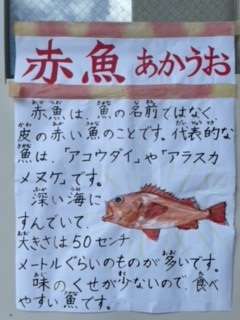 赤魚 あかうお
赤魚は、魚の名前ではなく、
皮の赤い魚のことです。代表的な
魚は、「アコウダイ」や「アラスカ
メヌケ」です。
深い海に
すんでいて、
大きさは50センチ
メートルぐらいのものが多いです。
味のくせが少ないので、食べ
やすい魚です。